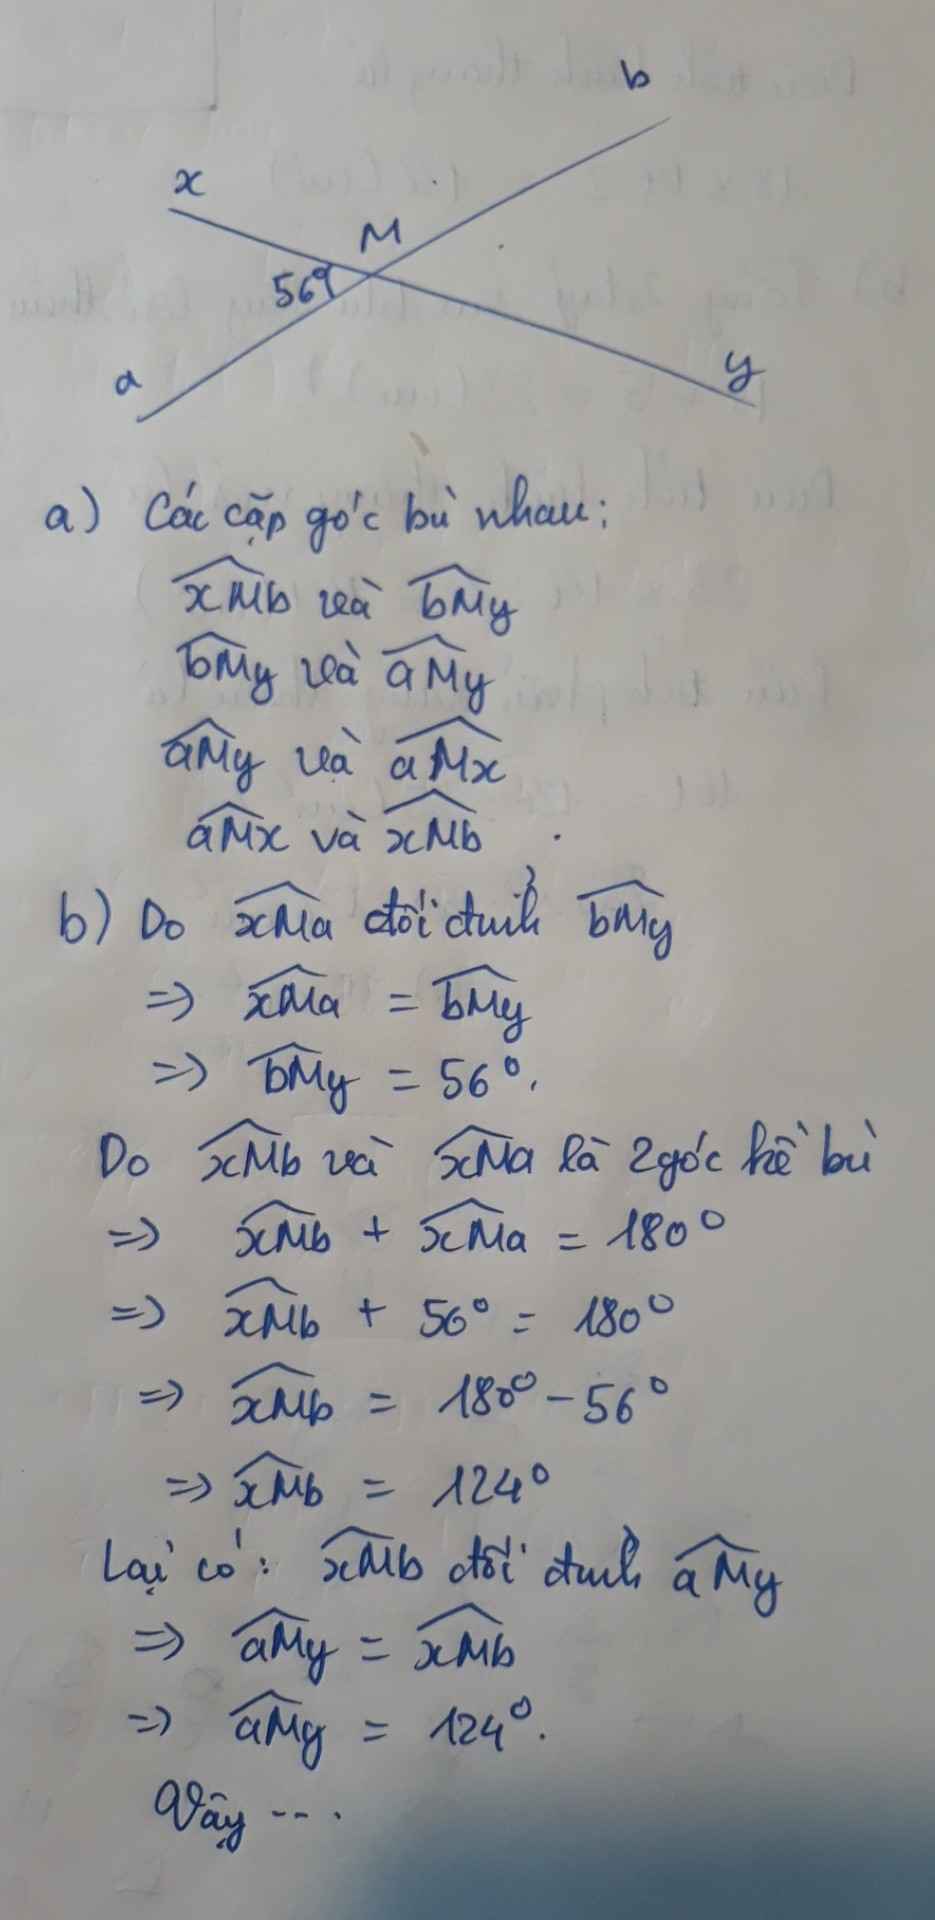 b
x
M
56°
a
y
a) Các cặp góc bù nhau:
$\widehat{xMb}$ và $\widehat{bMy}$
$\widehat{bMy}$ và $\widehat{aMy}$
$\widehat{aMy}$ và $\widehat{aMx}$
$\widehat{aMx}$ và $\widehat{xMb}$.
b) Do $\widehat{xMa}$ đối đỉnh $\widehat{bMy}$
=> $\widehat{xMa}$ = $\widehat{bMy}$
=> $\widehat{bMy}$ = 56°.
Do $\widehat{xMb}$ và $\widehat{xMa}$ là 2 góc kề bù
=> $\widehat{xMb}$ + $\widehat{xMa}$ = 180°
=> $\widehat{xMb}$ + 56° = 180°
=> $\widehat{xMb}$ = 180° - 56°
=> $\widehat{xMb}$ = 124°
Lại có: $\widehat{xMb}$ đối đỉnh $\widehat{aMy}$
=> $\widehat{aMy}$ = $\widehat{xMb}$
=> $\widehat{aMy}$ = 124°.
Vậy ....